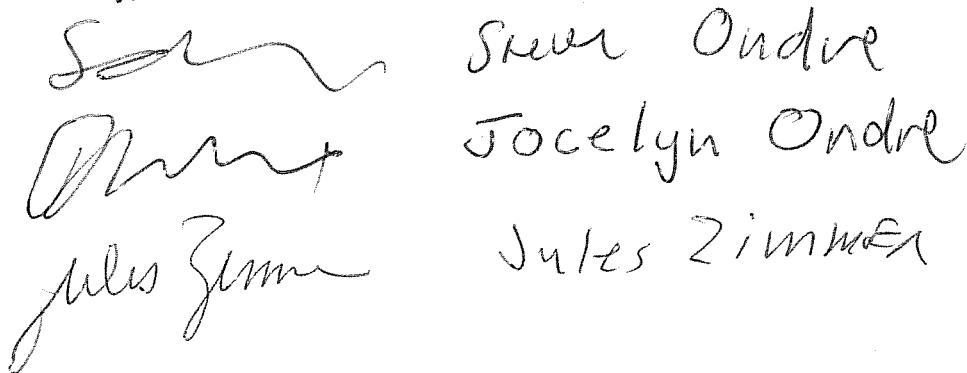 Steven Ondre
Jocelyn Ondre
Jules Zimmer Jules Zimmer